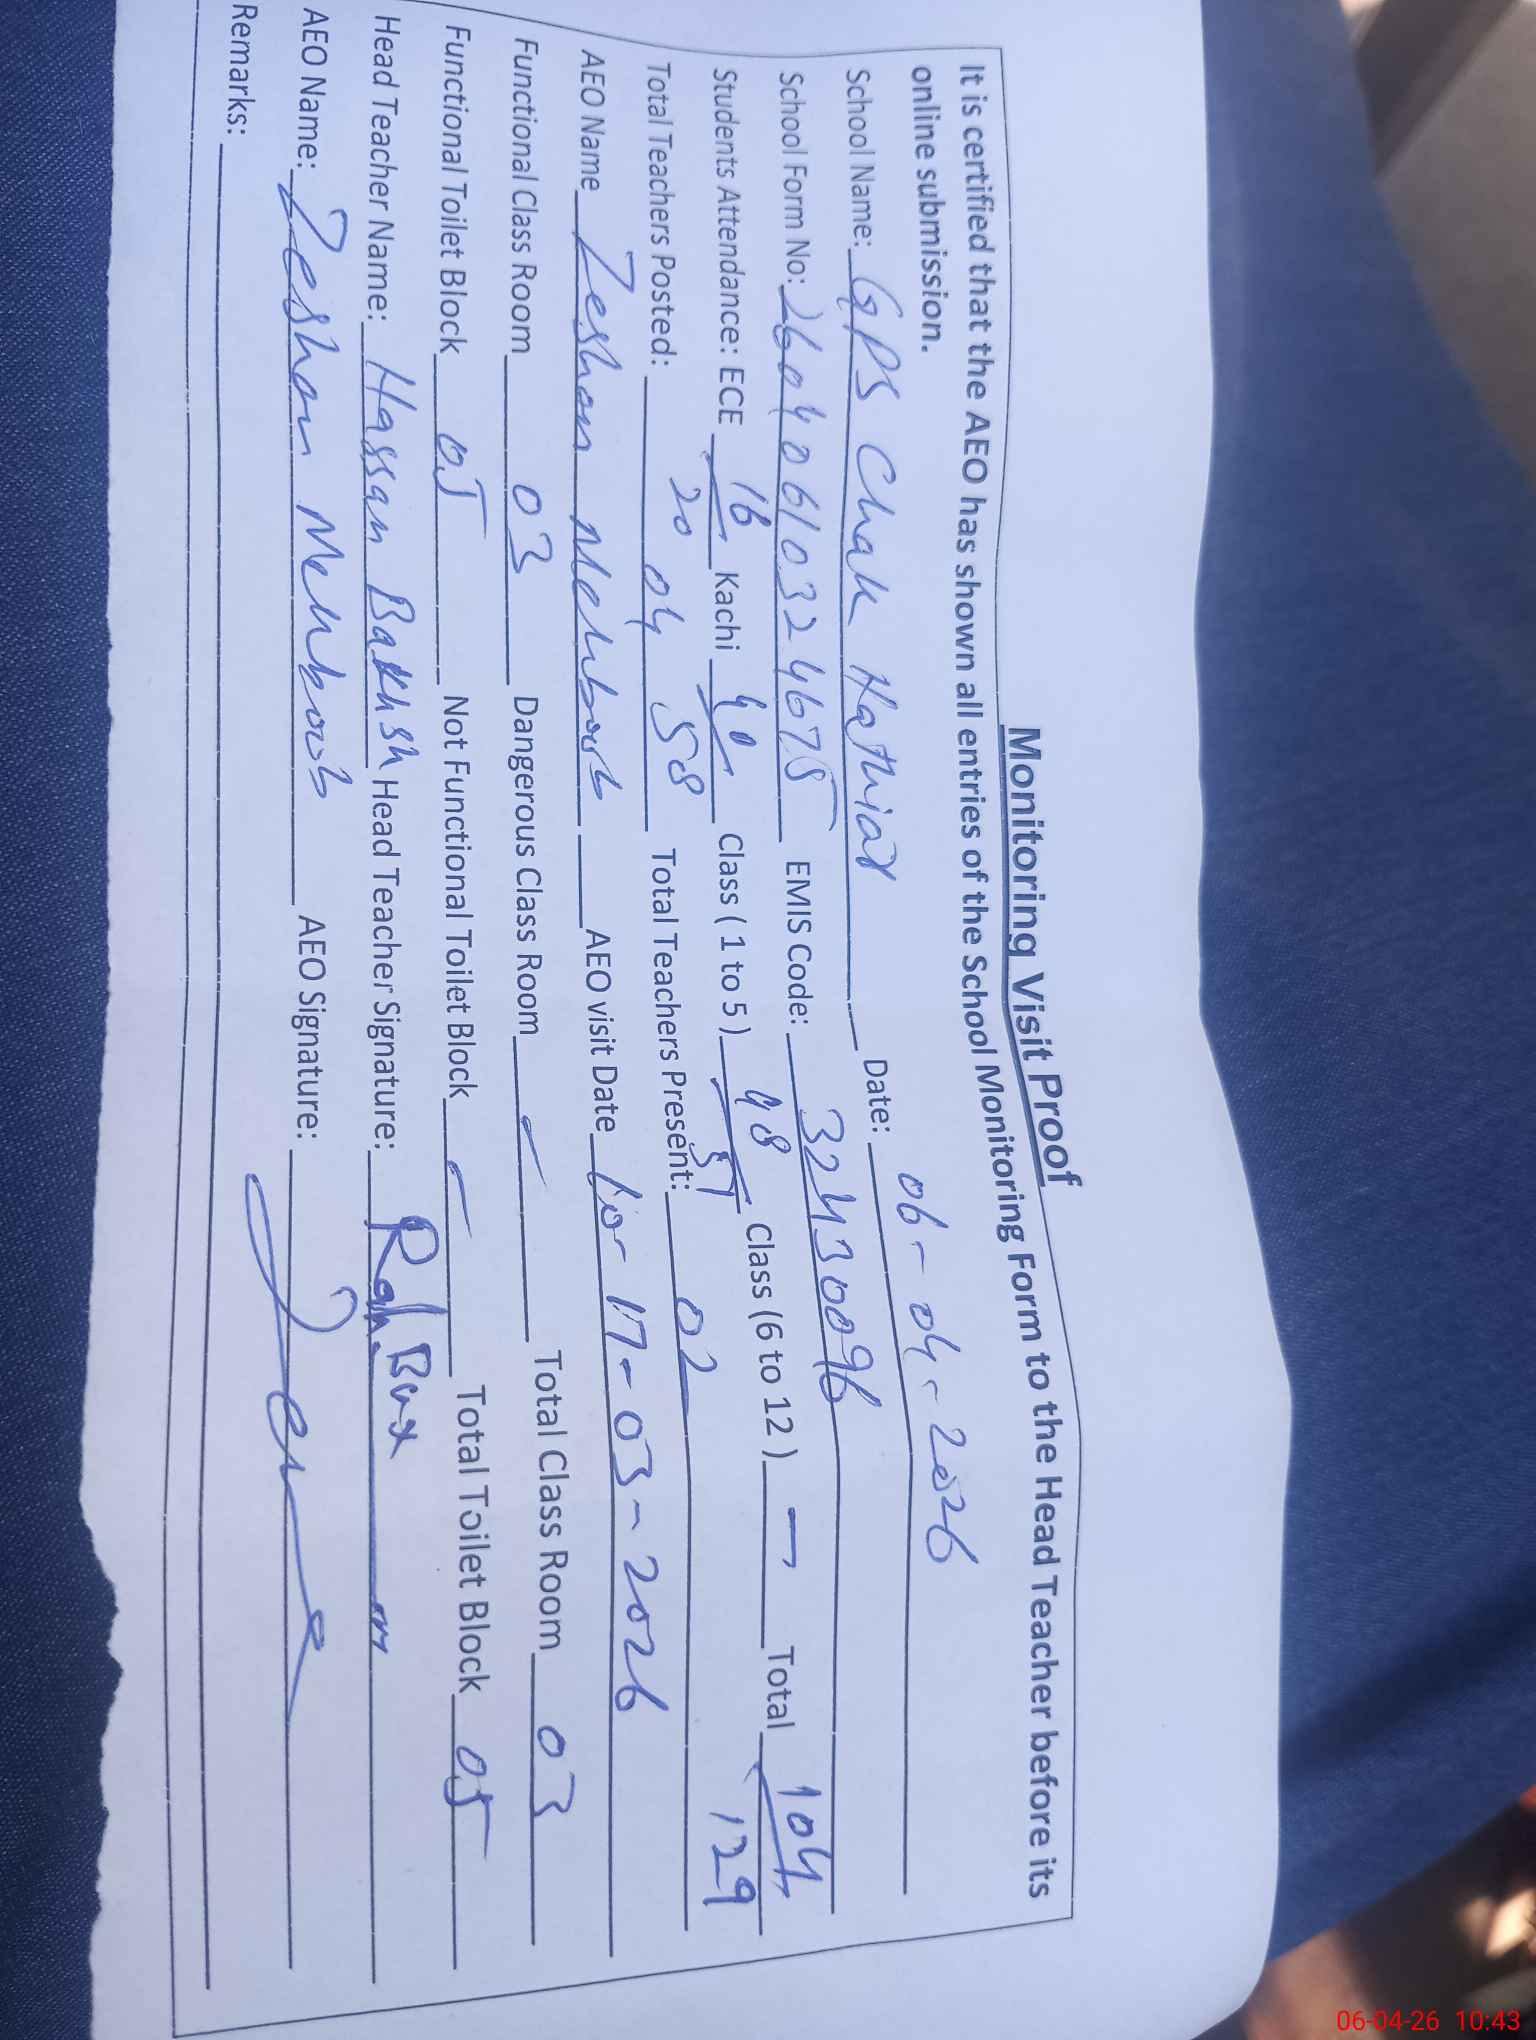 Monitoring Visit Proof
It is certified that the AEO has shown all entries of the School Monitoring Form to the Head Teacher before its
online submission.
School Name: GPS Chak Hathiar Date: 06-04-2026
School Form No: 26040610324675 EMIS Code: 32430096
Students Attendance: ECE 16/20 Kachi 40/58 Class ( 1 to 5 ) 48/51 Class (6 to 12 ) — Total 104/129
Total Teachers Posted: 04 Total Teachers Present: 02
AEO Name Zeshan Mehboob AEO visit Date 17-03-2026
Functional Class Room 03 Dangerous Class Room — Total Class Room 03
Functional Toilet Block 05 Not Functional Toilet Block — Total Toilet Block 05
Head Teacher Name: Hassan Bakhsh Head Teacher Signature:
AEO Name: Zeshan Mehboob AEO Signature:
Remarks:
06-04-26 10:43